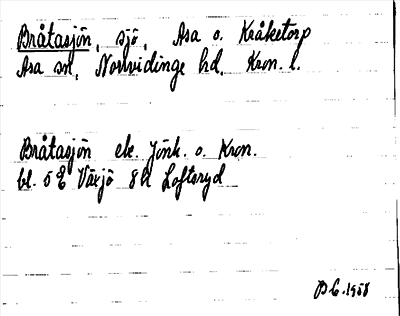 Bråtasjön, sjö, Asa o. Kråketorp
Asa sn, Norrvidinge hd, Kron. l.
Bråtasjön ek. Jönk. o. Kron.
bl. 5 E Växjö 8h Loftsryd
B C. 1958